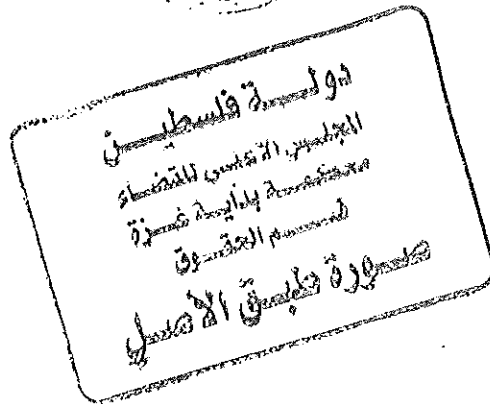 دولة فلسطين
المجلس الأعلى للقضاء
محكمة بداية غزة
قسم الحقوق
صورة طبق الأصل